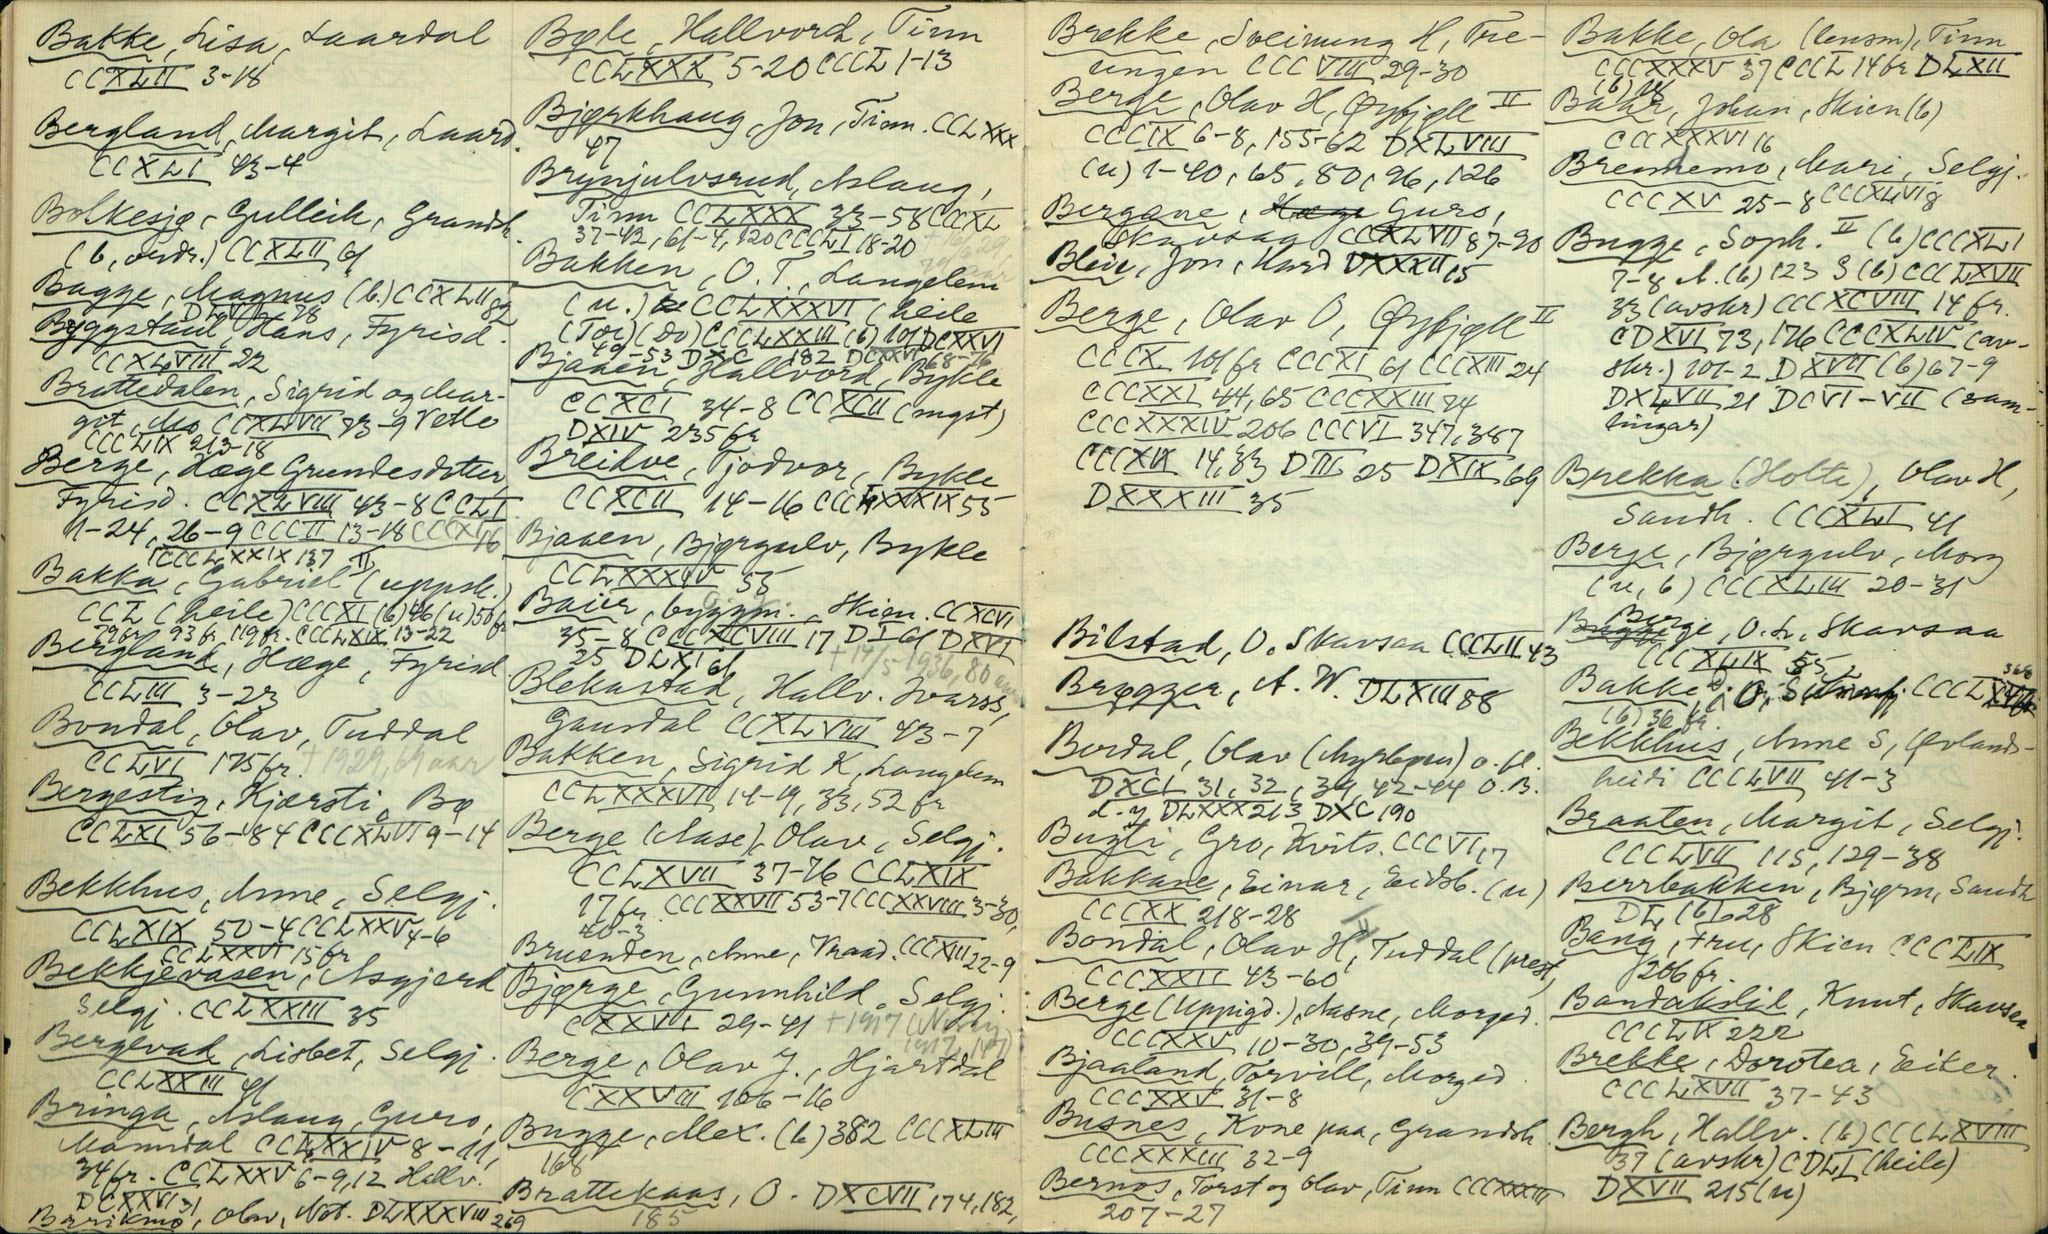 Bakke, Lisa, Laardal
CCXLII 3-18
Bergland, Margit, Laard.
CCXLI 43-4
Bolkesjø, Gulleik, Gransh.
(b, avskr.) CCXLII 61
Bugge, Magnus (b.) CCXLII 82
DLVII 78
Byggstaul, Hans, Fyrisd.
CCXLVIII 22
Brattedalen, Sigrid og Mar-
git, Mo CCXLVII 73-9 Vetle
CCCLIX 213-18
Berge, Hæge Grundesdotter
Fyrisd. CCXLVIII 43-8 CCLI
1-24, 26-9 CCCII 13-18 CCCXI 16
CCCLXXIX 137 II
Bakka, Gabriel (uppsk.)
CCL (heile) CCCXI (b) 46 (u) 50 fr
79 fr, 93 fr, 119 fr. CCCLXIX 13-22
Bergland, Hæge, Fyrisd
CCLIII 3-23
Bondal, Olav, Tuddal
CCLVI 175 fr. + 1929, 69 aar
Bergestig, Kjærsti, Bø
CCLXI 56-84 CCCXLVI 9-14
Bekkhus, Anne, Selgj.
CCLXIX 50-4 CCLXXV 4-6
CCLXXVI 15 fr
Bekkjevasen, Asgjerd
Selgj. CCLXXIII 35
Bergevad, Lisbet, Selgj.
CCLXXIII 41
Bringa, Aslaug, Guro,
Manndal CCLXXIV 8-11,
34 fr. CCLXXV 6-9, 12 Hallv.
DCXXVI 31
Olav, Not. DLXXXVIII 269
Bøle, Hallvord, Tinn
CCLXXX 5-20 CCCL 1-13
Bjørkhaug, Jon, Tinn. CCLXXX
47
Brynjulvsrud, Aslaug,
Tinn CCLXXX 33-58 CCCXL
37-42, 61-4, 120 CCCLI 18-20
Bakken, O. T., Langelem
(u.) CCLXXXVI (heile
(Tor) (Do) CCCLXXIII (b) 101 DCXXVI
49-53 DXC 182 DCXXVI 68-76
Bjaaen, Hallvord, Bykle
CCXCI 34-8 CCXCII (mgst)
DXIV 235 fr
Breihve, Tjodvor, Bykle
CCXCII 14-16 CCCLXXXIX 55
Bjaaen, Bjørgulv, Bykle
CCLXXXIV 55
Baier, byggm., Skien. CCXCVI
35-8 CCCXCVIII 17 DI 61 DXVI
25 DLXI 61
+ 14/5 1936, 80 aar
Blekastad, Hallv. Ivarss,
Gausdal CCXLVIII 43-7
Bakken, Sigrid K, Langelem
CCLXXXVII 14-19, 33, 52 fr
Berge (Aase), Olav, Selgj.
CCLXVII 37-76 CCLXIX
17 fr. CCCXXVII 53-7 CCCXXVIII 3-30,
40-3
Bruenden, Anne, Vraad. CCCXII 22-9
Bjørge, Gunnhild, Selgj.
CXXVI 29-41 + 1917
Berge, Olav J., Hjartdal
CXXVIII 106-16
Bugge, Alex. (b) 382 CCCXLIII
168
Brattekaas, O. DXCVII 174, 182,
185
Brekke, Sveinung H, Tre-
ungen CCCVIII 29-30
Berge, Olav H, Øyfjell II
CCCIX 6-8, 155-62 DXLVIII
(u) 1-40, 65, 80, 96, 126
Bergane, Guro,
Skavsaa CCCXLVII 87-90
Bleie, Jon, Hard DXXXII 15
Berge, Olav O, Øyfjell II
CCCX 101 fr CCCXI 61 CCCXIII 24
CCCXXI 44, 65 CCCXXIII 74
CCCXXXIV 206 CCCVI 347, 387
CCCXIX 14, 33 DIII 25 DXIX 69
DXXXIII 35
Bilstad, O. Skavsaa CCCLII 43
Brøgger, A. W. DLXIII 88
Bordal, Olav (Myrbøen) o. fl.
DXCI 31, 32, 39, 42-44 O. B.
d. y DLXXX 213 DXC 190
Bugti, Gro, Kvits. CCCVI, 7
Bakkane, Einar, Eidsb. (u)
CCCXX 218-28
Bondal, Olav H, Tuddal (prest,
CCCXXII 43-60
Berge (Uppigd.), Aasne, Morged.
CCCXXV 10-30, 39-53
Bjaaland, Torvill, Morged.
CCCXXV 31-8
Busnes, Kone paa, Gransh.
CCCXXXIII 32-9
Bernos, Torst og Olav, Tinn CCCXXXIII
207-27
Bakke, Ola (lensm), Tinn
CCCXXXV 37 CCCL 14 fr DLXII
(b) 18
Bahr, Johan, Skien (b)
CCCXXXVI 16
Brennemo, Mari, Selgj.
CCCXV 25-8 CCCXLVI 8
Bugge, Soph. II (b) CCCXLI
7-8 A. (b) 123 S (b) CCCLXVII
33 (avskr) CCCXCVIII 14 fr.
CDXVI 73, 176 CCCXLIV (av-
skr.) 101-2 DXVI (b) 67-9
DXLVII 21 DCVI-VII (sam-
lingar)
Brekka (Holte), Olav H,
Sandh. CCCXLI 41
Berge, Bjørgulv, Morg
(u, b) CCCXLIII 20-31
Berge, O. L., Skavsaa
CCCXLIX 55
Bakke, O,
(b) 36 fr.
Bekkhus, Anne S, Øvlands-
heidi CCCLVII 41-3
Braaten, Margit, Selgj.
CCCLVII 115, 129-38
Berrbakken, Bjørn, Sandh
DL (b) 28
Bang, Fru, Skien CCCLIX
206 fr.
Bandakslid, Knut, Skavsaa
CCCLIX 222
Brekke, Dorotea, Eiker.
CCCLXVII 37-43
Bergh, Hallv. (b) CCCLXVIII
37 (avskr) CDLI (heile)
DXVII 215 (u)